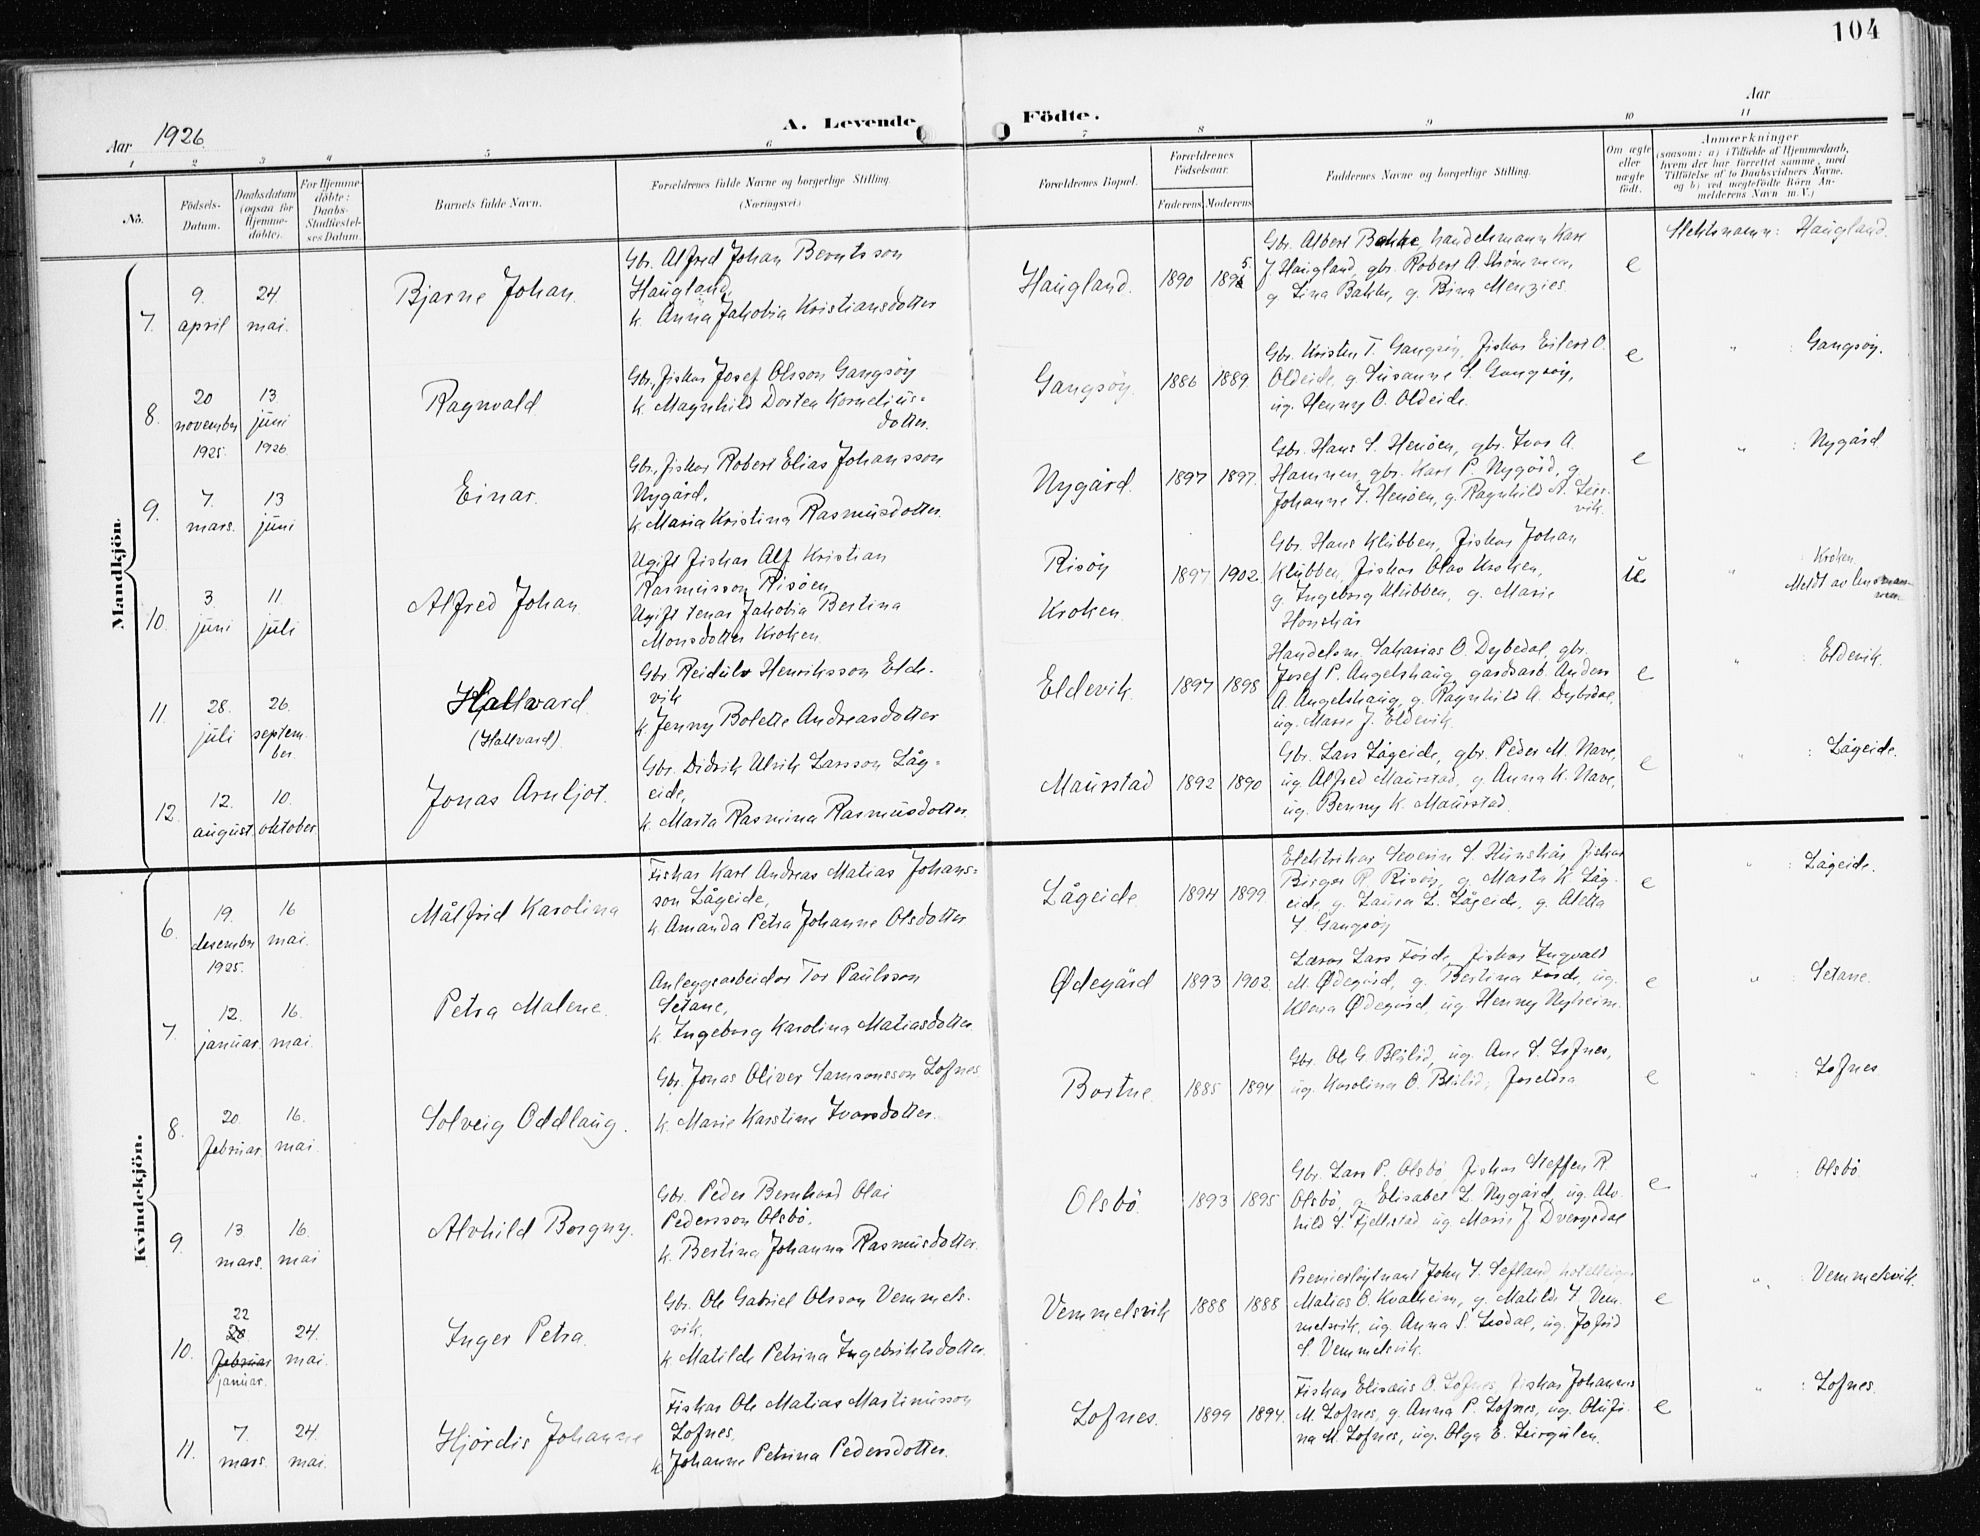 104
Aar 1926
A. Levende Födte.
Aar
1 2 3 4 5 6 7 8 9 10 11
No.
Födsels-Datum.
Daabsdatum (ogsaa for Hjemmedøbte).
For Hjemmedøbte: Daabs-Stadfæstelses Datum.
Barnets fulde Navn.
Forældrenes fulde Navne og borgerlige Stilling (Næringsvei)
Forældrenes Bopæl.
Forældrenes Födselsaar.
Faderens Moderens
Faddernes Navne og borgerlige Stilling.
Om ægte eller uægte födt.
Anmærkninger
(saasom: a) i Tilfælde af Hjemmedaab,
hvem der har forrettet samme, med
Tilföielse af to Daabsvidners Navne,
og b) ved uægtefödte Börn An-
melderens Navn m.V.)
Mandkjön.
7. 9. april 24 mai.
Bjarne Johan.
Gbr. Alfred Johan Berntsson
Haugland,
k. Anna Jakobia Kristiansdotter
Haugland. 1890 1895
Gbr. Albert Bakke, handelsmann Kare
J. Haugland, gbr. Robert A. Strømmen,
g. Lina Bakke, g. Bina Menzies.
e
Slektsnamn: Haugland.
8. 20 november 1925. 13 juni 1926
Ragnvald
Gbr., fiskar Josef Olsson Gangsöy
k. Magnhild Dorten Kornelius-
dotter.
Gangsöy. 1886 1889.
Gbr. Kristen T. Gangsöy, fiskar Eilert O.
Oldeide, g. Susanne S. Gangsöy,
ug. Henny O. Oldeide.
e
" : Gangsöy.
9. 7. mars. 13 juni
Einar.
Gbr., fiskar Robert Elias Johansson
Nygård,
k. Maria Kristina Rasmusdotter.
Nygård. 1897 1897.
Gbr. Hans S. Henöen, gbr. Ivar A.
Hamnen, gbr. Kare P. Nygård, g.
Johanne S. Henöen, g. Ragnhild A. Leir-
vik.
e
" : Nygård
10. 3 juni 11. juli
Alfred Johan
Ugift fiskar Alf Kristian
Rasmusson Risöen
Ugift tenar Jakobia Bertina
Monsdotter Kroken.
Risöy
Kroken.
1897 1902.
Gbr. Hans Klubben, fiskar Johan
Klubben, fiskar Olav Kroken,
g. Ingeborg Klubben, g. Marie
Honskår
u
" : Kroken
Meldt av lensman-
nen
11. 28. juli 26. september.
Hallvard.
(Hallvard).
Gbr. Reidulv Henriksson Elde-
vik
k. Jenny Bolette Andreasdotter
Eldevik. 1897 1898
Handelsm. Sakarias O. Dybedal, gbr.
Josef P. Angelshaug, gardsarb. Anders
A. Angelshaug, g. Ragnhild A. Dybedal,
ug. Marie J. Eldevik.
e
" : Eldevik.
12. 12. august. 10. oktober.
Jonas Arnljot.
Gbr. Didrik Ulrik Larsson Låg-
eide,
k. Marta Rasmina Rasmusdotter.
Maurstad 1892 1890
Gbr. Lars Lågeide, gbr. Peder M. Nave,
ug. Alfred Maurstad, g. Anna K. Nave,
ug. Benny K. Maurstad.
e
" : Lågeide.
Kvindekjön.
6. 19. desember 1925. 16 mai.
Målfrid Karolina
Fiskar Karl Andreas Matias Johans-
son Lågeide,
k. Amanda Petra Johanne Olsdotter
Lågeide 1894 1899.
Elektrikar Severin S. Hunskår, fiskar
Birger R. Risöy, g. Marta K. Låg-
eide, g. Laura L. Lågeide, g. Aletta
S. Gangsöy
e
" : Lågeide.
7. 12. januar. 16. mai.
Petra Malene.
Anleggsarbeidar Tor Paulsson
Setane,
k. Ingeborg Karolina Matiasdotter.
Ødegård 1893 1902.
Lærar Lars Förde, fiskar Ingvald
M. Ødegård, g. Bertina Förde, ug.
Klara Ødegård, ug. Henny Nyheim.
e
" : Setane.
8. 20. februar 16. mai.
Solveig Oddlaug.
Gbr. Jonas Oliver Samsonsson Lofnes
k. Marie Karstine Ivarsdotter.
Bortne. 1885 1894
Gbr. Ole G. Blålid, ug. Ane S. Lofnes,
ug. Karolina O. Blålid, foreldra
e
" : Lofnes
9. 13 mars. 16. mai
Alvhild Borgny.
Gbr. Peder Bernhard Olai
Pedersson Olsbö,
k. Bertina Johanna Rasmusdotter.
Olsbö. 1893 1895
Gbr. Lars P. Olsbö, fiskar Steffen R.
Olsbö, g. Elisabet L. Nygård, ug. Alv-
hild S. Fjellestad, ug. Marie J. Dvergsdal
e
" : Olsbö
10. 22 20. februar januar. 24. mai.
Inger Petra.
Gbr. Ole Gabriel Olsson Vemmels-
vik,
k. Matilde Petrina Ingebriktsdotter.
Vemmelsvik 1888 1888
Premierløytnant John S. Sefland, hotelleigar
Matias O. Kvalheim, g. Matilde S. Vem-
melsvik, ug. Anna S. Lesdal, ug. Jofrid
S. Vemmelsvik.
e
" : Vemmelsvik.
11. 7. mars. 24. mai.
Hjördis Johanne
Fiskar Ole Matias Martinusson
Lofnes,
k. Johanne Petrina Pedersdotter.
Lofnes. 1899 1894.
Fiskar Elisæus O. Lofnes, fiskar Johannes
M. Lofnes, g. Anna P. Lofnes, ug. Olufi-
na M. Lofnes, ug. Olga E. Leirgulen.
e
" : Lofnes.